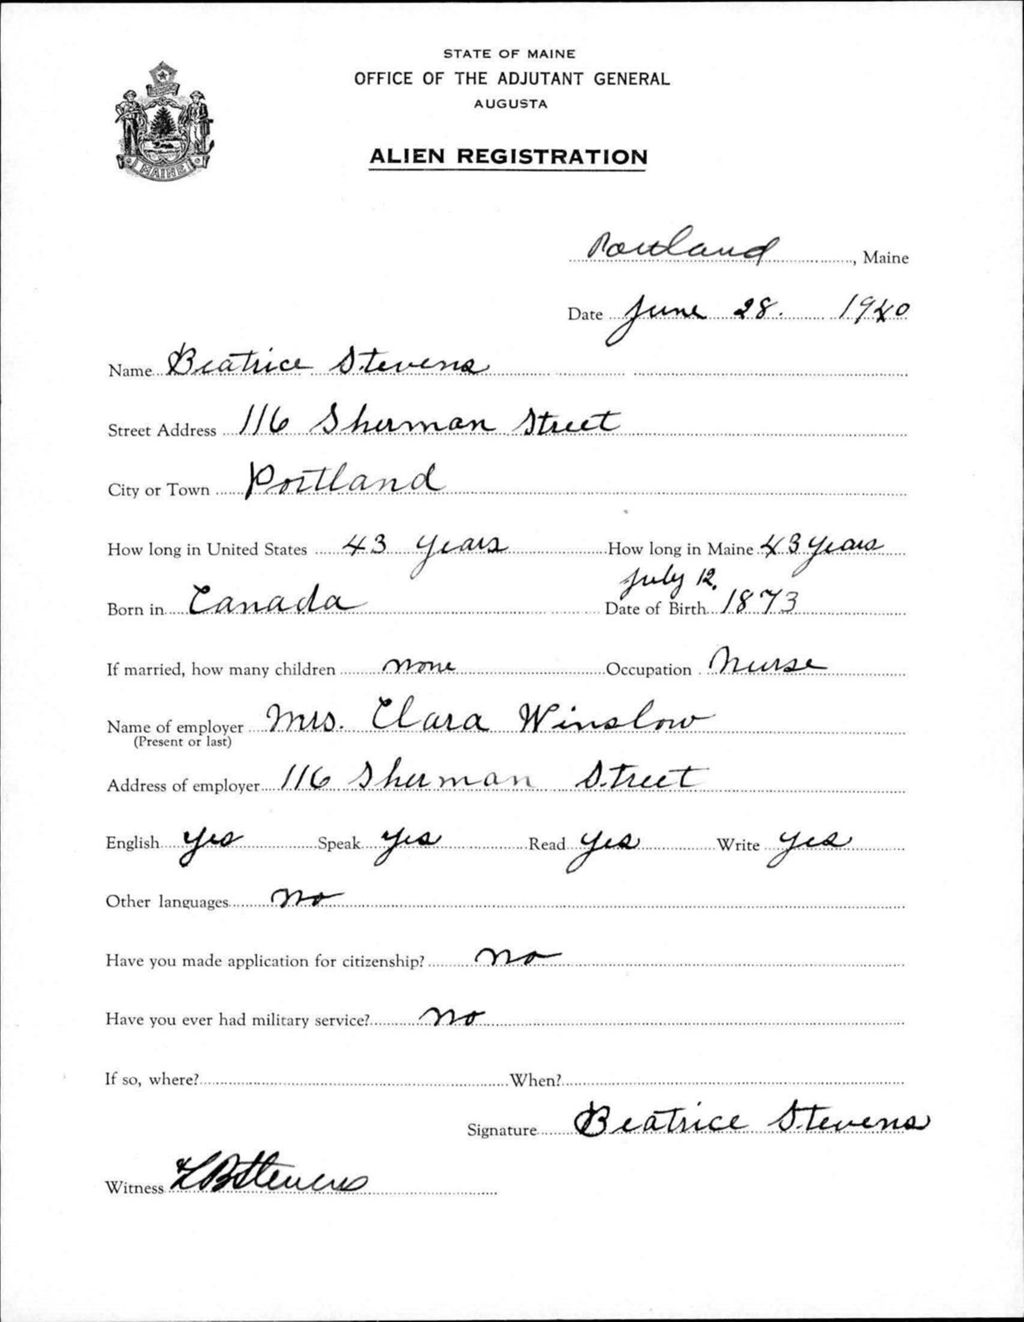 STATE OF MAINE
OFFICE OF THE ADJUTANT GENERAL
AUGUSTA
ALIEN REGISTRATION
MAINE
Portland, Maine
Date June 28. 1940
Name Beatrice Stevens
Street Address 116 Sherman Street
City or Town Portland
How long in United States 43 years How long in Maine 43 years
July 12,
Born in Canada Date of Birth 1873
If married, how many children none Occupation Nurse
Name of employer Mrs. Clara Winslow
(Present or last)
Address of employer 116 Sherman Street
English yes Speak yes Read yes Write yes
Other languages no
Have you made application for citizenship? no
Have you ever had military service? no
If so, where? When?
Signature Beatrice Stevens
Witness Stevens